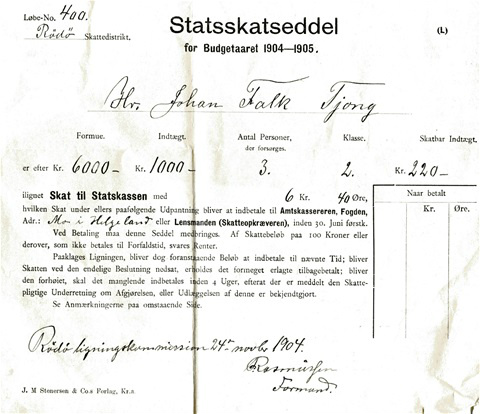 Løbe-No. 400.
Rödö Skattedistrikt.
Statsskatseddel
(L)
for Budgetaaret 1904—1905.
Hr. Johan Falk Tjong
Formue. Indtægt. Antal Personer, Klasse. Skatbar Indtægt.
der forsørges.
er efter Kr. 6000– Kr. 1000– 3. 2. Kr. 220–
ilignet Skat til Statskassen med 6 Kr. 40 Øre,
hvilken Skat under ellers paafølgende Udpantning bliver at indbetale til Amtskassereren, Fogden,
Adr.: Mo i Helgeland eller Lensmanden (Skatteopkræveren), inden 30. Juni førstk.
Ved Betaling maa denne Seddel medbringes. Af Skattebeløb paa 100 Kroner eller
derover, som ikke betales til Forfaldstid, svares Renter.
Paaklages Ligningen, bliver dog foranstaaende Beløb at indbetale til nævnte Tid; bliver
Skatten ved den endelige Beslutning nedsat, erholdes det formeget erlagte tilbagebetalt; bliver
den forhøiet, skal det manglende indbetales inden 4 Uger, efterat der er meddelt den Skatte-
pligtige Underretning om Afgjørelsen, eller Udlæggelsen af denne er bekjendtgjort.
Se Anmærkningerne paa omstaaende Side.
Naar betalt
Kr. Øre.
Rödö ligningskommission 24de novbr 1904.
Rasmussen
Formand.
J. M Stenersen & Co.s Forlag, Kr.a